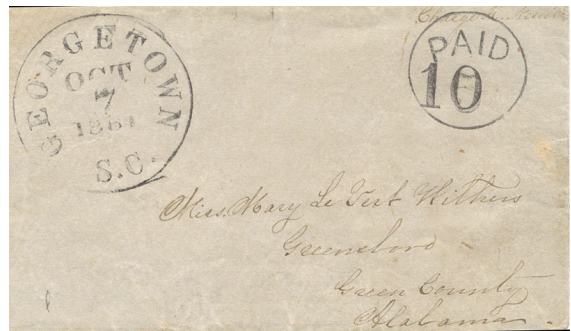 GEORGETOWN
OCT
7
1861
S.C.
PAID
10
Miss. Mary Le Vert Withers
Greensboro
Green County
Alabama